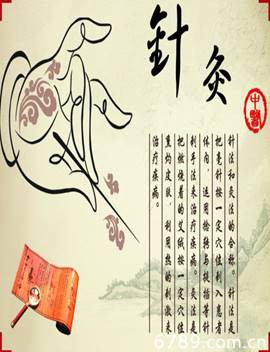 針灸
中醫
针法和灸法的合称。针法是
把毫针按一定穴位刺入患者
体内，运用捻转与提插等针
刺手法来治疗疾病。灸法是
把燃烧着的艾绒按一定穴位
熏灼皮肤，利用热的刺激来
治疗疾病。
6789.com.cn